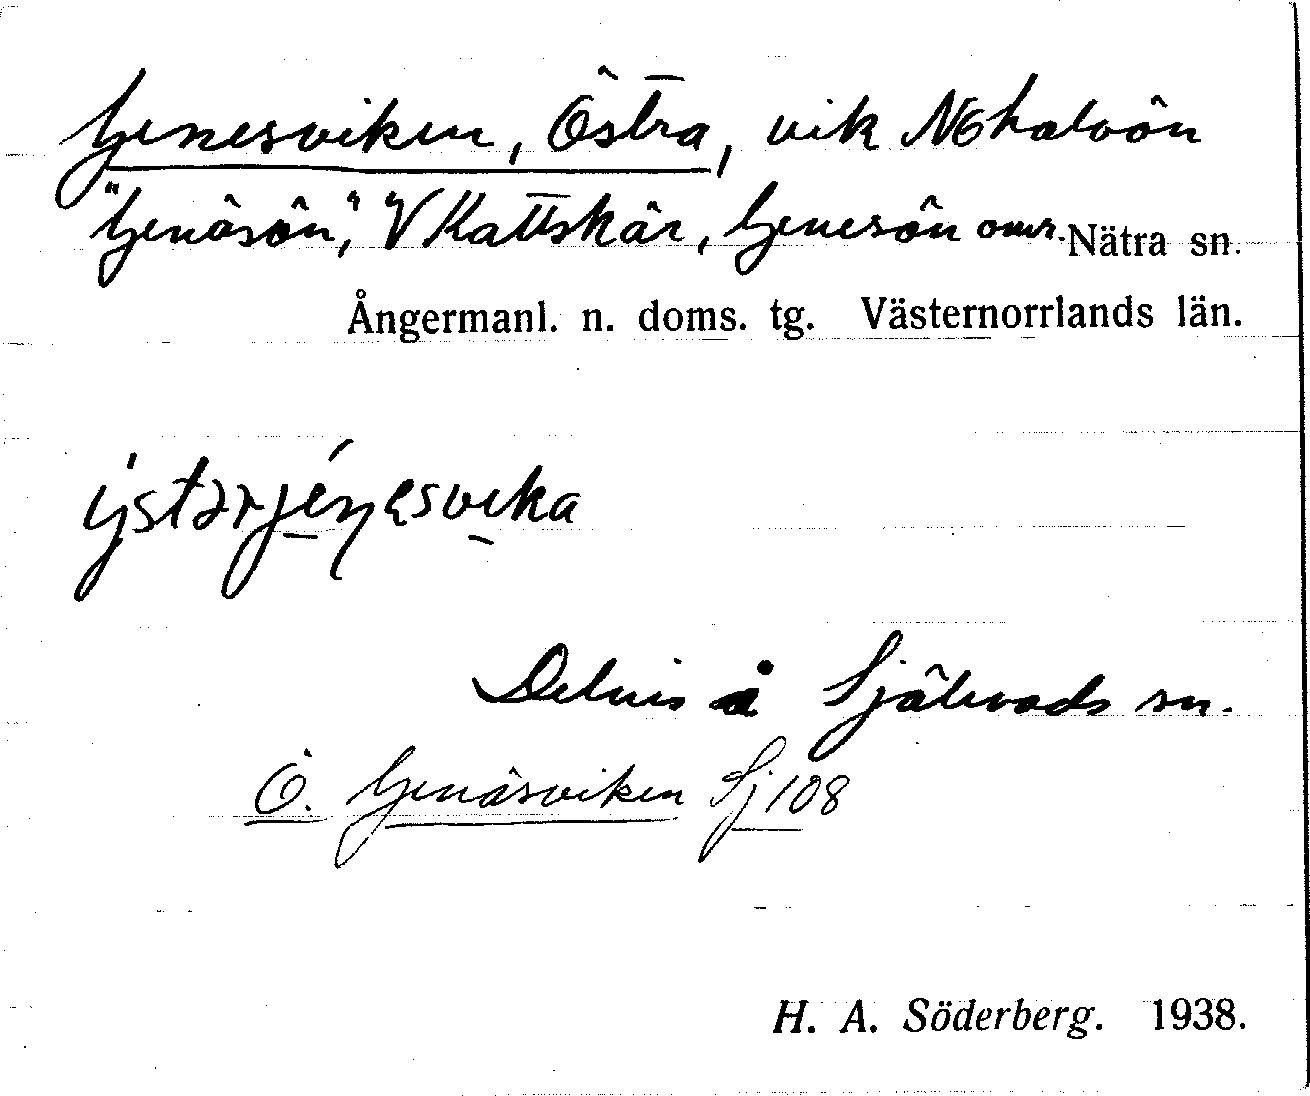 Genesviken, Östra, vik NO halvön
"Genäsön", V Kattskär, Genesön omr. Nätra sn.
Ångermanl. n. doms. tg. Västernorrlands län.
Delvis å Själevads sn.
Ö. Genäsviken Sj 108
H. A. Söderberg. 1938.